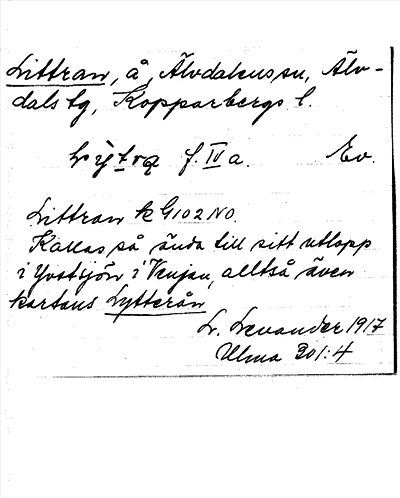 Littran, å, Älvdalens sn, Älv-
dals tg, Kopparbergs l.
f. IV a. Ev.
Littran k G102 NO.
Kallas så ända till sitt utlopp
i Yvstsjön i Venjan, alltså även
kartans Lytterån
L. Levander 1917
Ulma 301:4